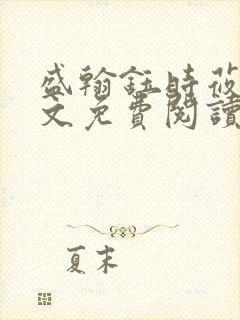 盛翰鈺時莜
文免費閱讀
夏末